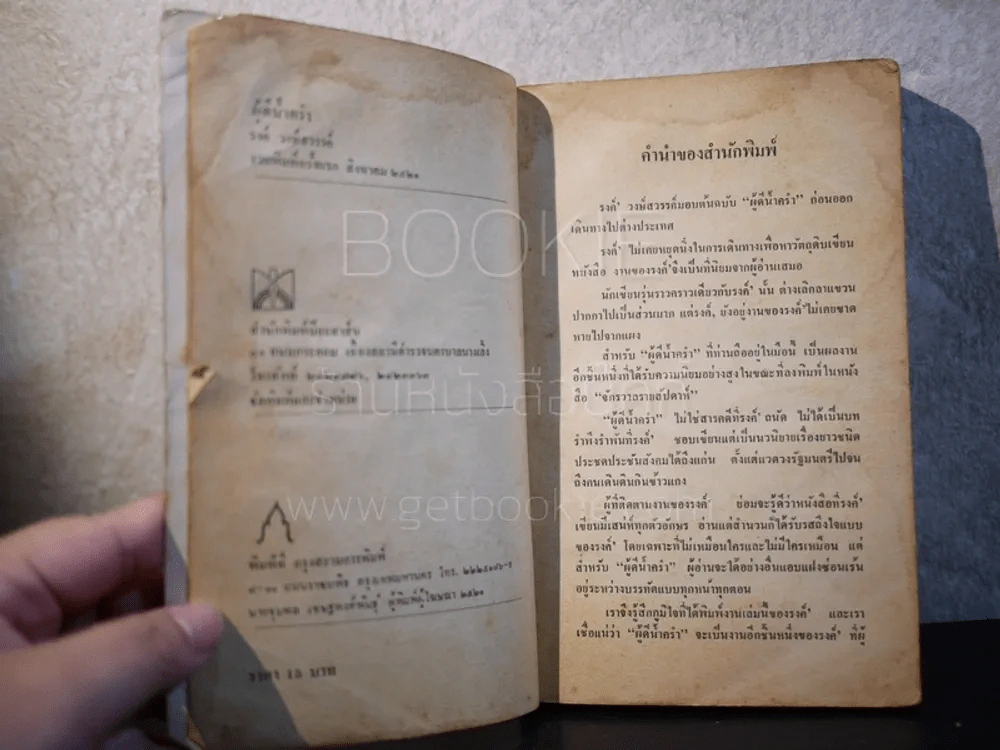 ผู้ดีน้ำครำ
รงค์ วงษ์สวรรค์
รวมพิมพ์ครั้งแรก สิงหาคม ๒๕๒๑
สำนักพิมพ์
โทรศัพท์
จัดพิมพ์และจำหน่าย
พิมพ์ที่ กรุงสยามการพิมพ์
กรุงเทพมหานคร โทร.
ผู้พิมพ์ผู้โฆษณา ๒๕๒๑
ราคา ๑๕ บาท
คำนำของสำนักพิมพ์
รงค์' วงษ์สวรรค์มอบต้นฉบับ “ผู้ดีน้ำครำ” ก่อนออก
เดินทางไปต่างประเทศ
รงค์' ไม่เคยหยุดนิ่งในการเดินทางเพื่อหาวัตถุดิบเขียน
หนังสือ งานของรงค์'จึงเป็นที่นิยมจากผู้อ่านเสมอ
นักเขียนรุ่นราวคราวเดียวกับรงค์' นั้น ต่างเลิกลาแขวน
ปากกาไปเป็นส่วนมาก แต่รงค์' ยังอยู่งานของรงค์'ไม่เคยขาด
หายไปจากแผง
สำหรับ “ผู้ดีน้ำครำ” ที่ท่านถืออยู่ในมือนี้ เป็นผลงาน
อีกชิ้นหนึ่งที่ได้รับความนิยมอย่างสูงในขณะที่ลงพิมพ์ในหนัง
สือ “จักรวาลรายสัปดาห์”
“ผู้ดีน้ำครำ” ไม่ใช่สารคดีที่รงค์' ถนัด ไม่ได้เป็นบท
รำพึงรำพันที่รงค์' ชอบเขียนแต่เป็นนวนิยายเรื่องยาวชนิด
ประชดประชันสังคมได้ถึงแก่น ตั้งแต่แวดวงรัฐมนตรีไปจน
ถึงคนเดินดินกินข้าวแกง
ผู้ที่ติดตามงานของรงค์' ย่อมจะรู้ดีว่าหนังสือที่รงค์'
เขียนมีเสน่ห์ทุกตัวอักษร อ่านแต่สำนวนก็ได้รสถึงใจแบบ
ของรงค์' โดยเฉพาะที่ไม่เหมือนใครและไม่มีใครเหมือน แต่
สำหรับ “ผู้ดีน้ำครำ” ผู้อ่านจะได้อย่างอื่นแอบแฝงซ่อนเร้น
อยู่ระหว่างบรรทัดแบบทุกหน้าทุกตอน
เราจึงรู้สึกภูมิใจที่ได้พิมพ์งานเล่มนี้ของรงค์' และเรา
เชื่อแน่ว่า “ผู้ดีน้ำครำ” จะเป็นงานอีกชิ้นหนึ่งของรงค์' ที่ผู้
BOOKIE
ร้านหนังสือ
www.getbookie.com